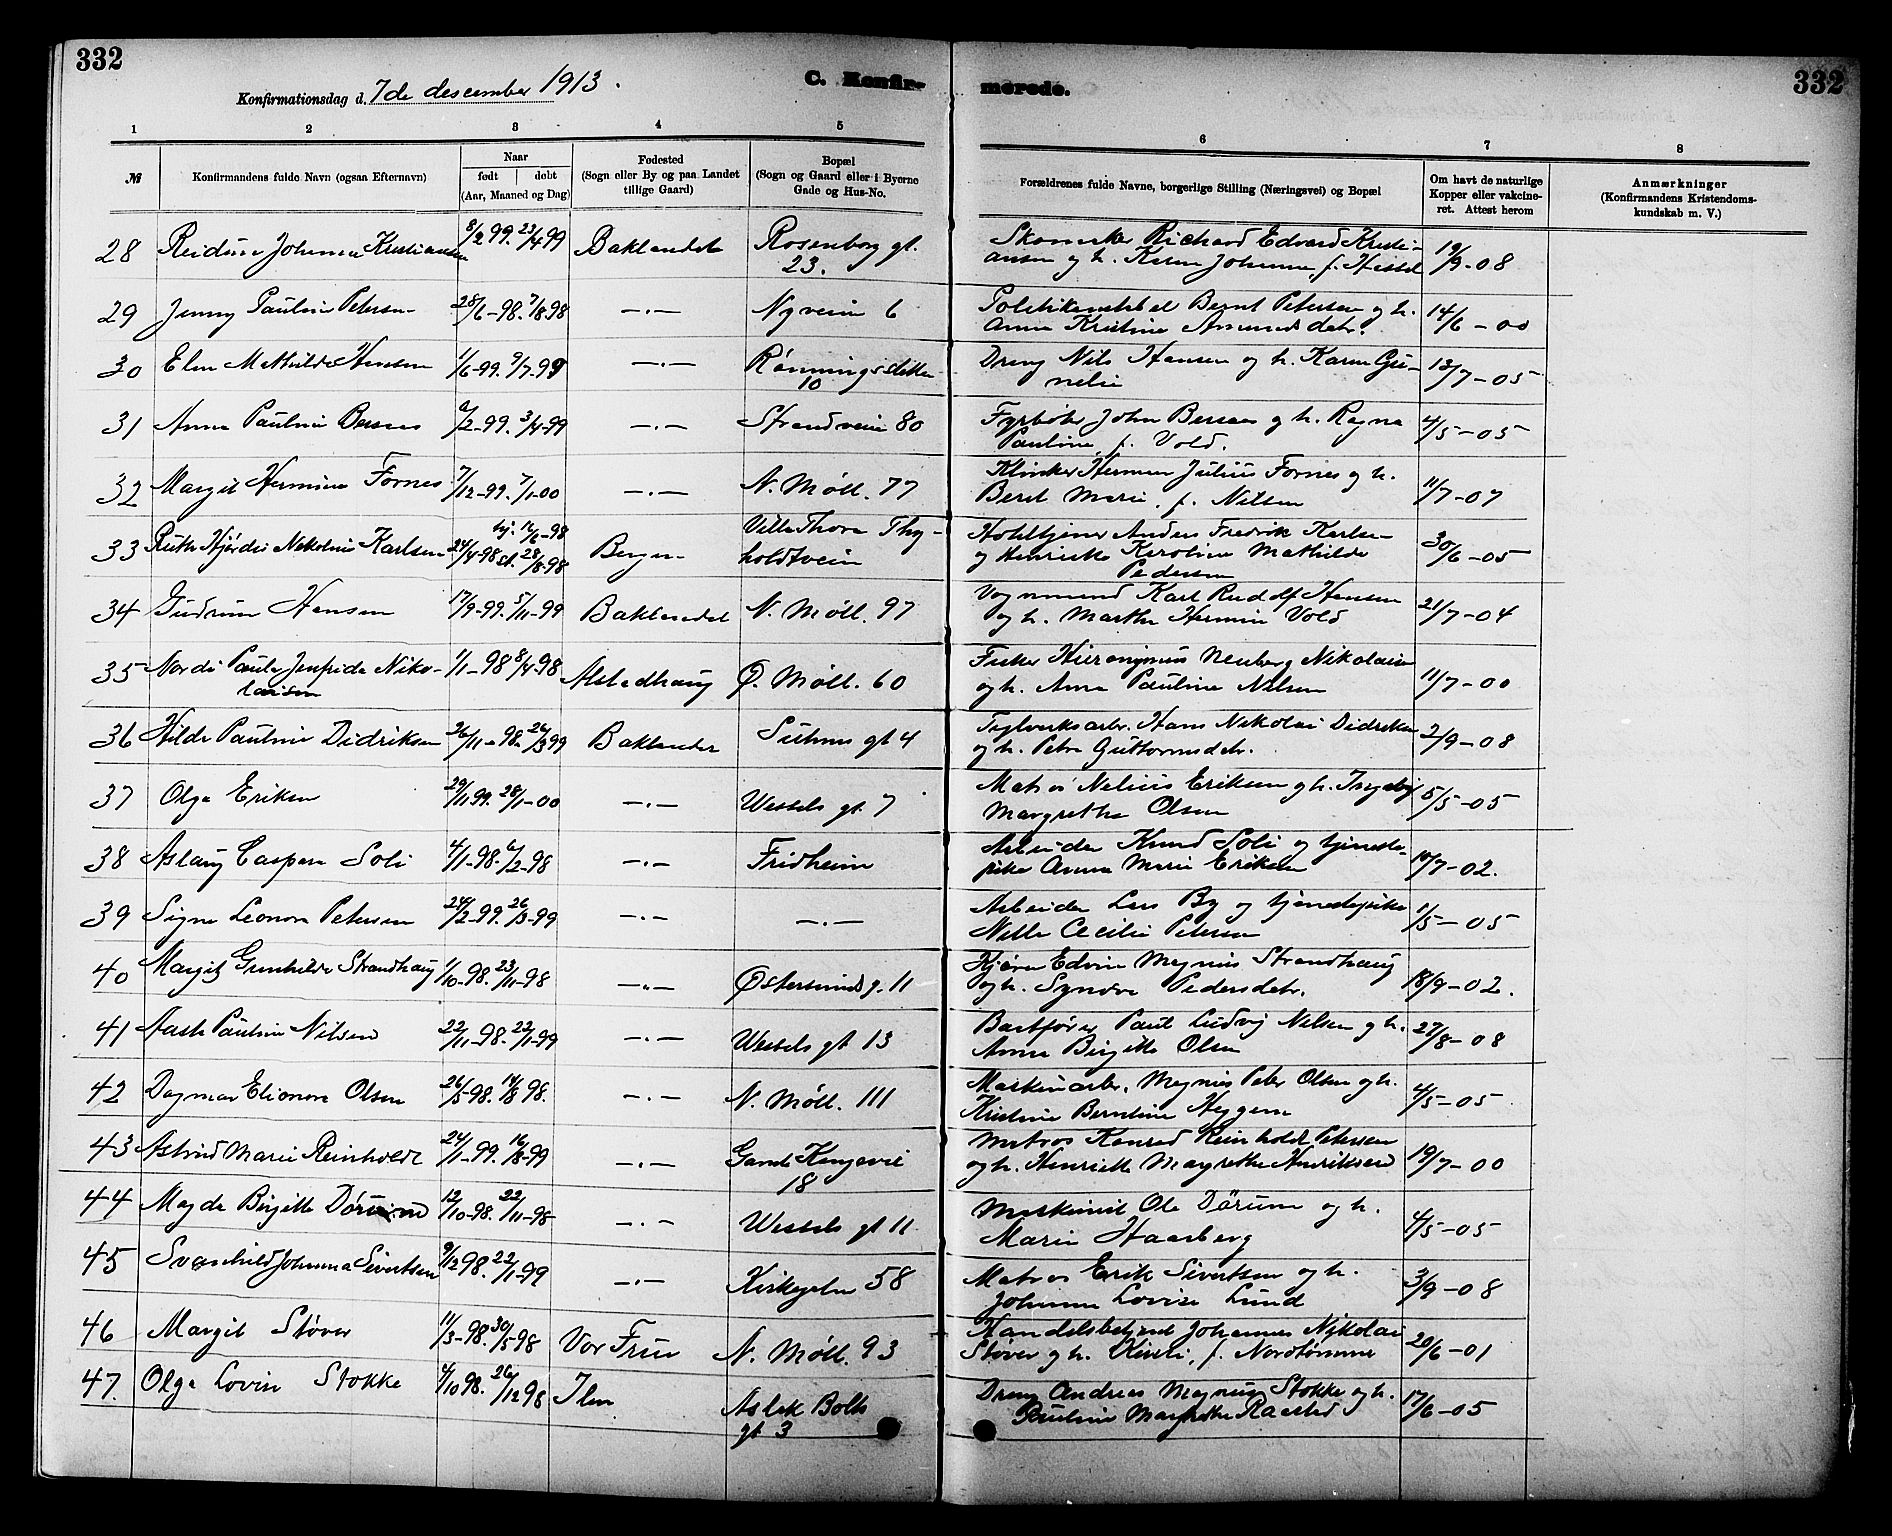 332
Konfirmationsdag d. 7de descember 1913.
C. Konfir-
merede.
332
1 2 3 4 5 6 7 8
№
Konfirmandens fulde Navn (ogsaa Efternavn)
Naar
født døbt
(Aar, Maaned og Dag)
Fødested
(Sogn eller By og paa Landet
tillige Gaard)
Bopæl
(Sogn og Gaard eller i Byerne
Gade og Hus-No.
Forældrenes fulde Navne, borgerlige Stilling (Næringsvei) og Bopæl
Om havt de naturlige
Kopper eller vakcine-
ret. Attest herom
Anmærkninger
(Konfirmandens Kristendoms-
kundskab m. V.)
28 Reidun Johanna Kristiansen 8/2 99. 23/4 99 Baklandet Rosenborg gt.
23.
Skomaker Richard Edvard Kristi-
ansen og h. Karen Johanne, f. Hissel 19/9-08
29 Jenny Pauline Petersen 28/6-98. 7/8-98 -"- Nyveien 6
Politikonstabel Bernt Petersen og h.
Anna Kristine Amundsdatr. 14/6-00
30 Elen Mathilde Hansen 1/6-99. 9/7-99 -"- Rønningsslette
10
Dreng Nils Hansen og h. Karen Gu-
nelie 13/7-05
31 Anna Pauline Bersaas /2-99. 3/4-99 -"- Strandveien 80
Fyrbøter John Bersaas og h. Ragna
Pauline, f. Vold. 4/5-05
32 Margit Hermine Fornes 7/12-99. 7/1-00 -"- N. Møll. 77
Klinker Herman Julius Fornes og h.
Berit Marie, f. Nilsen 11/7-07
33 Ruth Hjørdis Nikoline Karlsen 24/4-98 hj. 12/6-98
st. 28/8-98 Bergen Villa Thora Thy-
holdtveien
Hoteltjener Anders Fredrik Karlsen
og Henriette Karoline Mathilde
Pedersen 30/6-05
34 Gudrun Hansen 17/9-99. 5/11-99 Baklandet N. Møll. 97
Vognmand Karl Rudolf Hansen
og h. Marthe Hermine Vold 21/7-04
35 Nordis Paula Jenfrida Niko-
laisen 1/1-98 8/4-98 Alstadhaug Ø. Møll. 60
Fisker Hieronymus Neuberg Nikolaisen
og h. Anna Pauline Nilsen 11/7-00
36 Hilda Pauline Didriksen 26/11-98. 26/3 99 Baklandet Suhms gt 4
Teglverksarb. Hans Nikolai Didriksen
og h. Petra Guttormsdatr. 2/9-08
37 Olga Eriksen 29/11 99. 28/1-00 -"- Wessels gt. 7
Matros Nelius Eriksen og h. Ingeborg
Margrethe Olsen 5/5-05
38 Aslaug Caspara Soli 4/1-98. 6/2-98 -"- Fridheim
Arbeider Knud Soli og tjeneste-
pike Anna Marie Eriksen 10/7-02.
39 Signe Leonora Petersen 24/2-99. 26/3-99 -"- -"-
Arbeider Lars By og tjenestepike
Nella Cecilie Petersen 1/5-05
40 Margit Gunhilde Strandhaug 1/10-98. 23/11-98 -"- Østersunds g. 11
Kjører Edvin Magnus Strandhaug
og h. Synøve Pedersdatr. 18/9-02.
41 Aasta Pauline Nilsen 22/11-98. 22/1-99 -"- Wessels gt 13
Baatfører Paul Ludvig Nilsen og h.
Anna Birgitte Olsen 27/8-08
42 Dagmar Elionora Olsen 26/5-98. 14/8 98. -"- N. Møll. 111
Maskinarb. Magnus Peter Olsen og h.
Kristine Berntine Heggem 4/5-05
43 Astrid Marie Reinholdt 24/1-99. 16/8-99 -"- Gamle Kongevei
18
Matros Konrad Reinholdt Petersen
og h. Henriette Margrethe Henriksen 19/7-00
44 Magda Birgitte Dørum 12/10-98. 22/11-98 -"- Wessels gt 11.
Maskinist Ole Dørum og h.
Marie Haarberg 4/5-05
45 Svanhild Johanna Sivertsen 9/12 98. 22/1-99 -"- Kirkegaten 58
Matros Erik Sivertsen og h.
Johanna Lovise Lund 3/9-08
46 Margit Støver 11/3-98. 30/5-98 Vor Frue N. Møll. 93
Handelsbetjent Johannes Nikolai
Støver og h. Kirsti, f. Nordtømme 20/6-01
47. Olga Lovise Stokke 4/10 98. 26/12 98 Ilen Aslak Bolts
gt 3
Dreng Andreas Magnus Stokke og h.
Pauline Margrethe Raasted 17/6-05